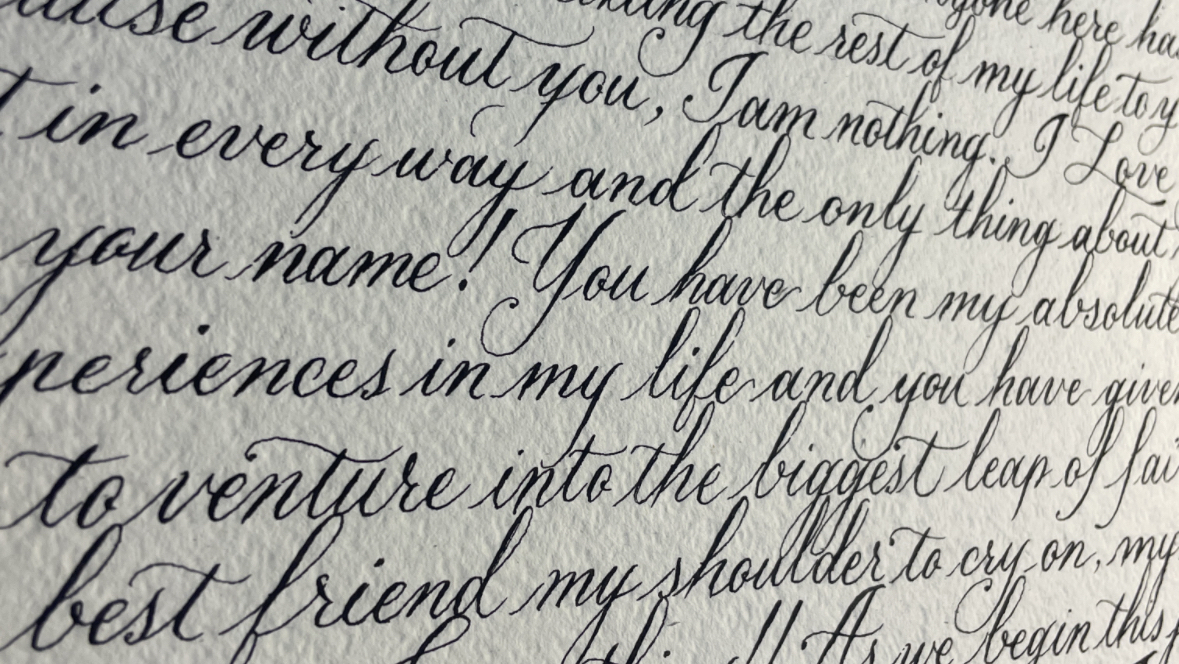 the rest of my life to y
without you, I am nothing. I Love
in every way and the only thing about
your name! You have been my absolute
periences in my life and you have given
to venture into the biggest leap of fai
best friend my shoulder to cry on, my
!! As we begin this